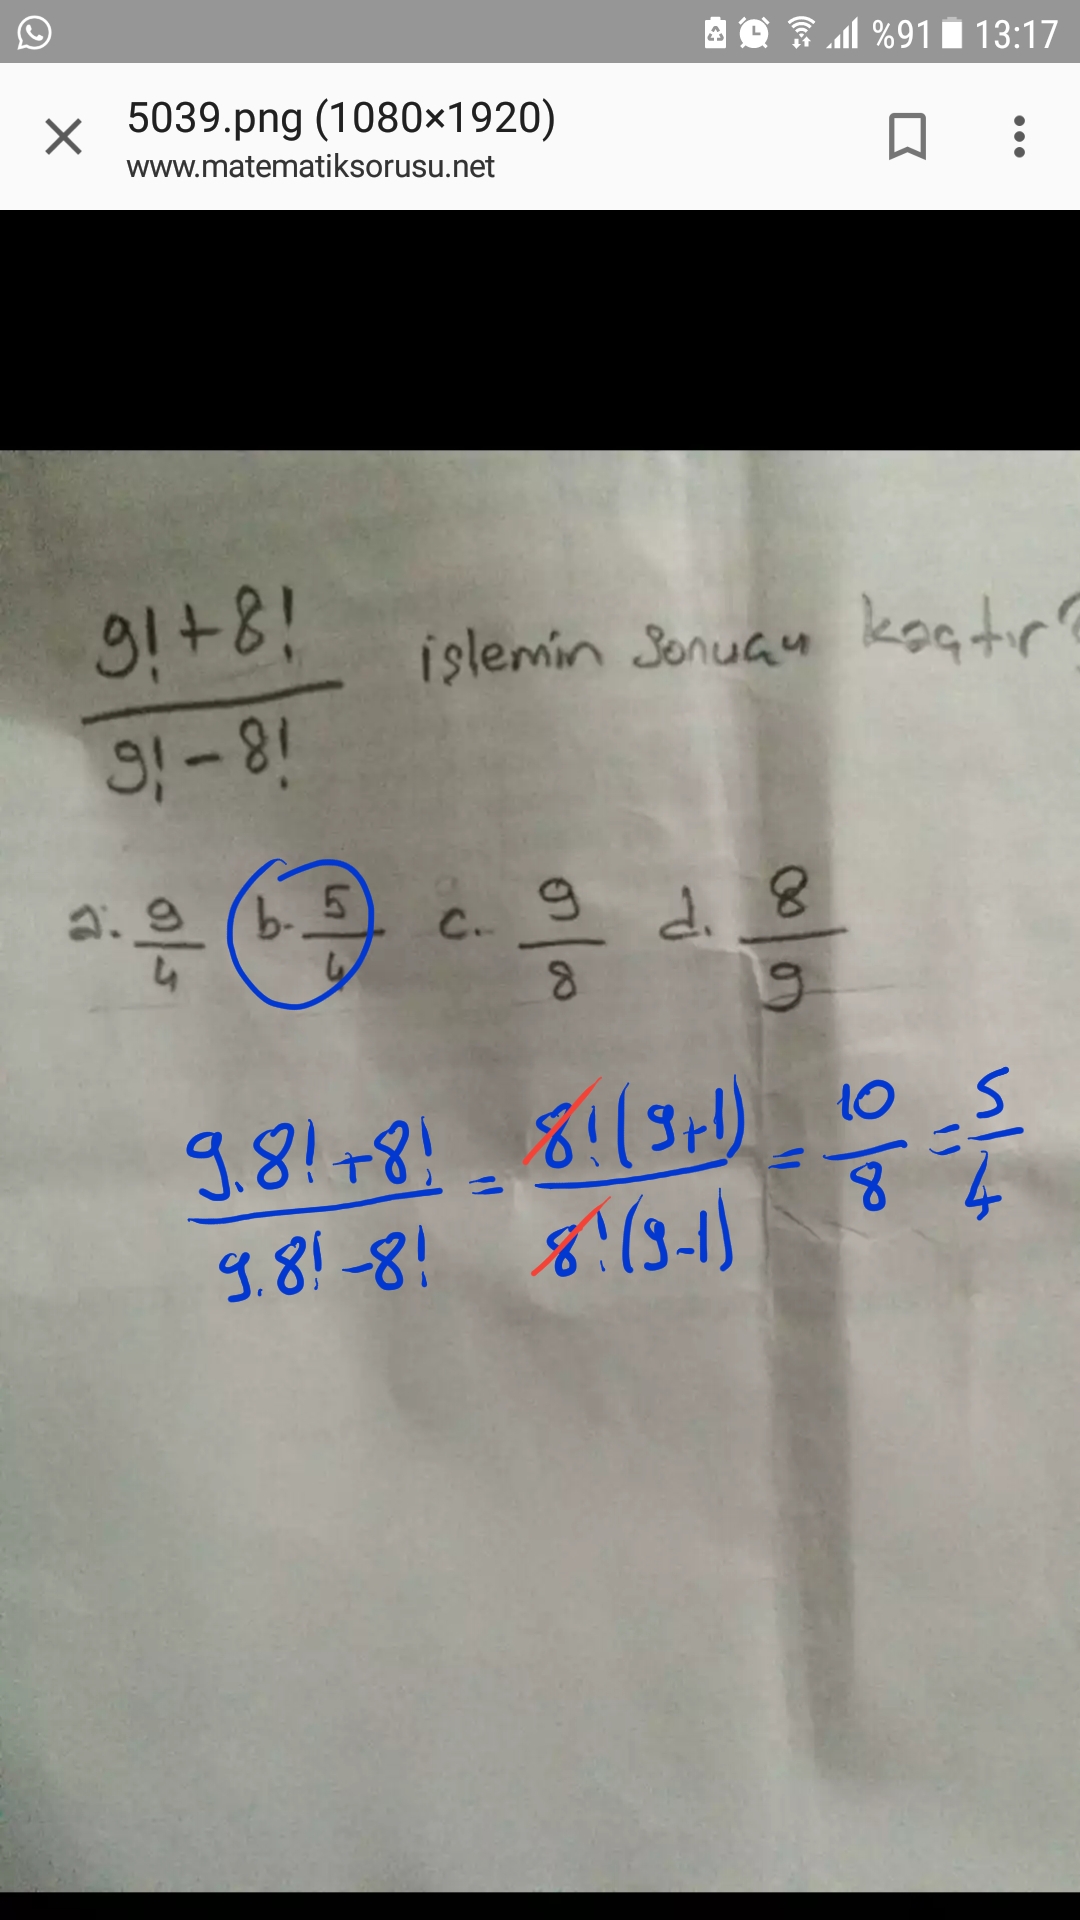 %91 13:17
5039.png (1080×1920)
www.matematiksorusu.net
9!+8! / 9!-8! işlemin sonucu kaçtır?
a. 9/4 b. 5/4 c. 9/8 d. 8/9
9.8!+8! / 9.8!-8! = 8!(9+1) / 8!(9-1) = 10/8 = 5/4